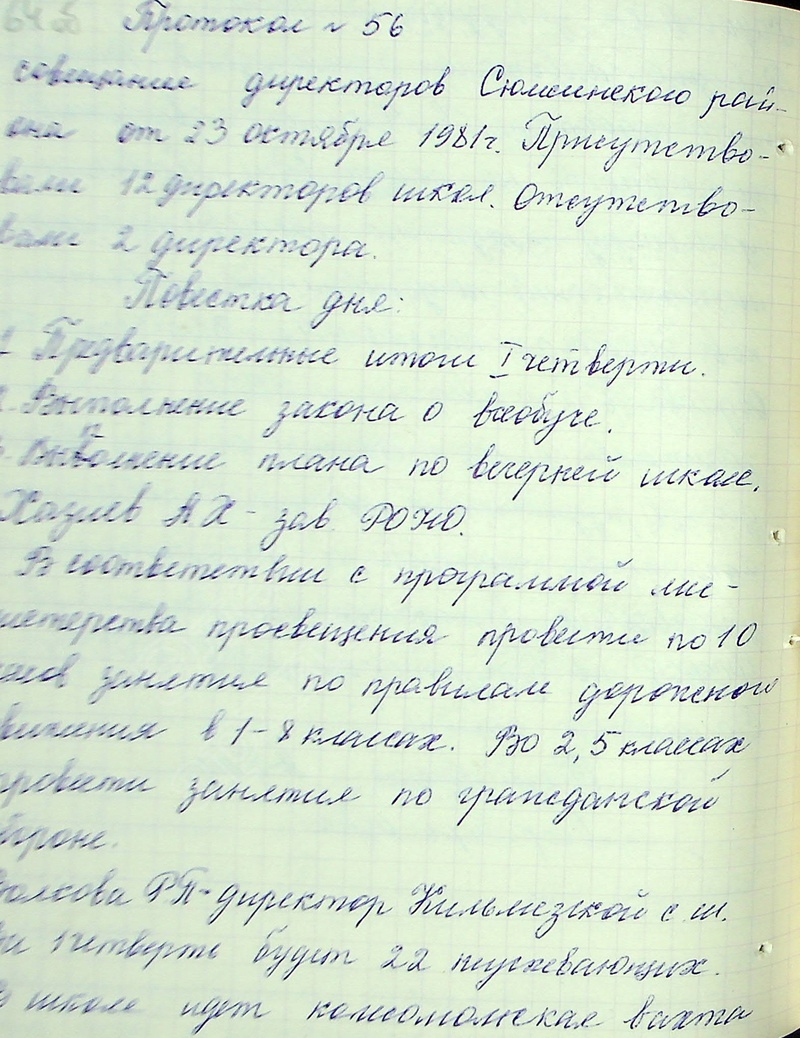 Протокол № 56
совещание директоров Сюмсинского рай-
она от 23 октября 1981г. Присутство-
вали 12 директоров школ. Отсутство-
вали 2 директора.
Повестка дня:
1 Предварительные итоги I четверти.
2. Выполнение закона о всеобуче.
3. Выполнение плана по вечерней школе.
Хазиев А Х - зав. РОНО.
В соответствии с программой ми-
нистерства просвещения провести по 10
часов занятия по правилам дорожного
движения в 1-8 классах. Во 2, 5 классах
провести занятия по гражданской
обороне.
Волкова РП - директор Кильмезской с ш.
За I четверть будет 22 неуспевающих.
В школе идет комсомольская вахта